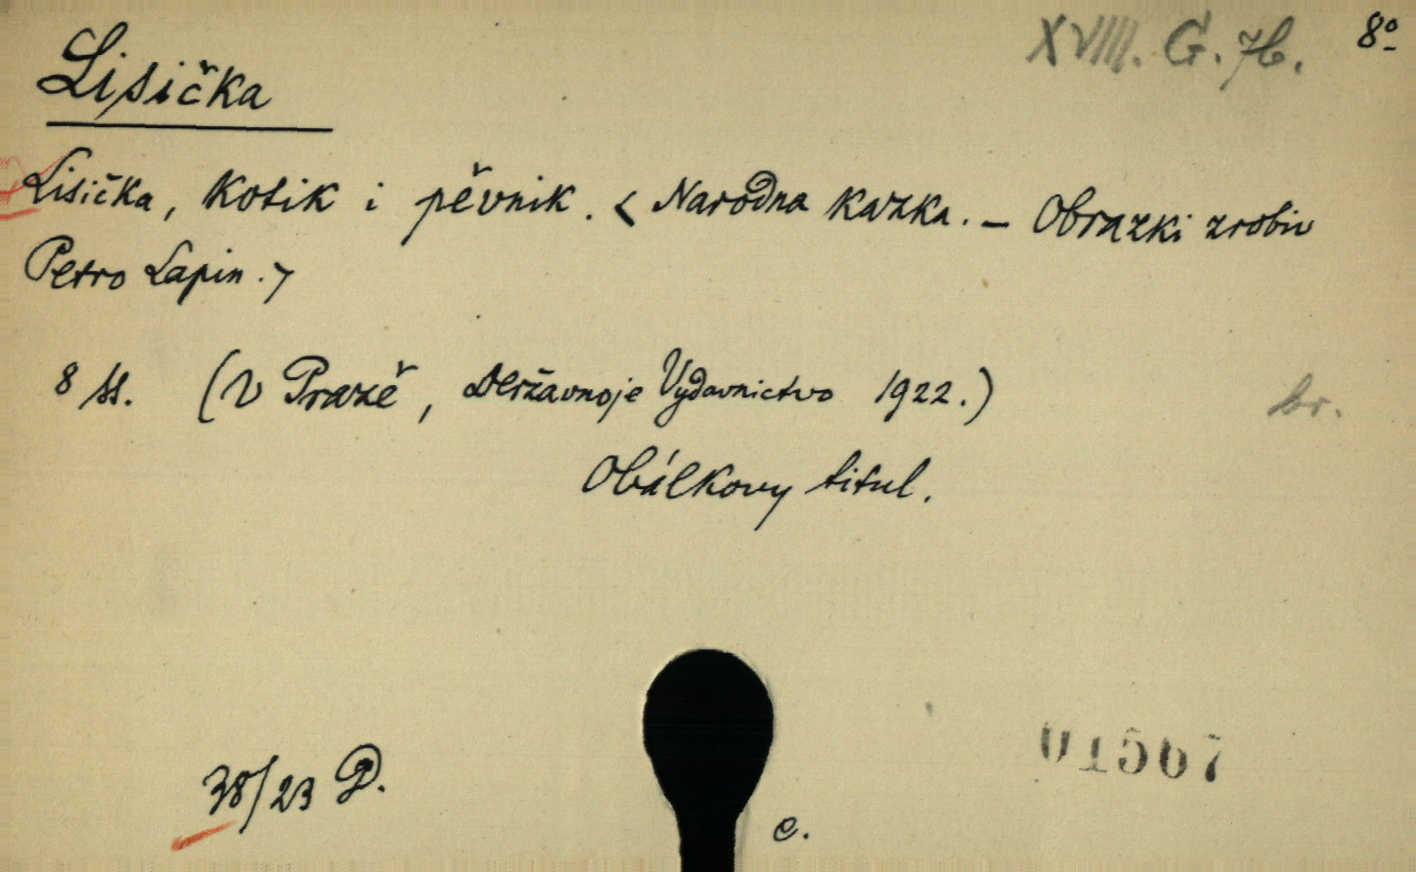 XVIII. G. 76. 8º
Lisička
Lisička, kotik i pěvnik. < Narodna kazka. – Obrazki zrobiv
Petro Lapin. >
8 ss. (V Prazě, Deržavnoje Vydavnictvo 1922.)
br.
Obálkovy titul.
38/23 D.
e.